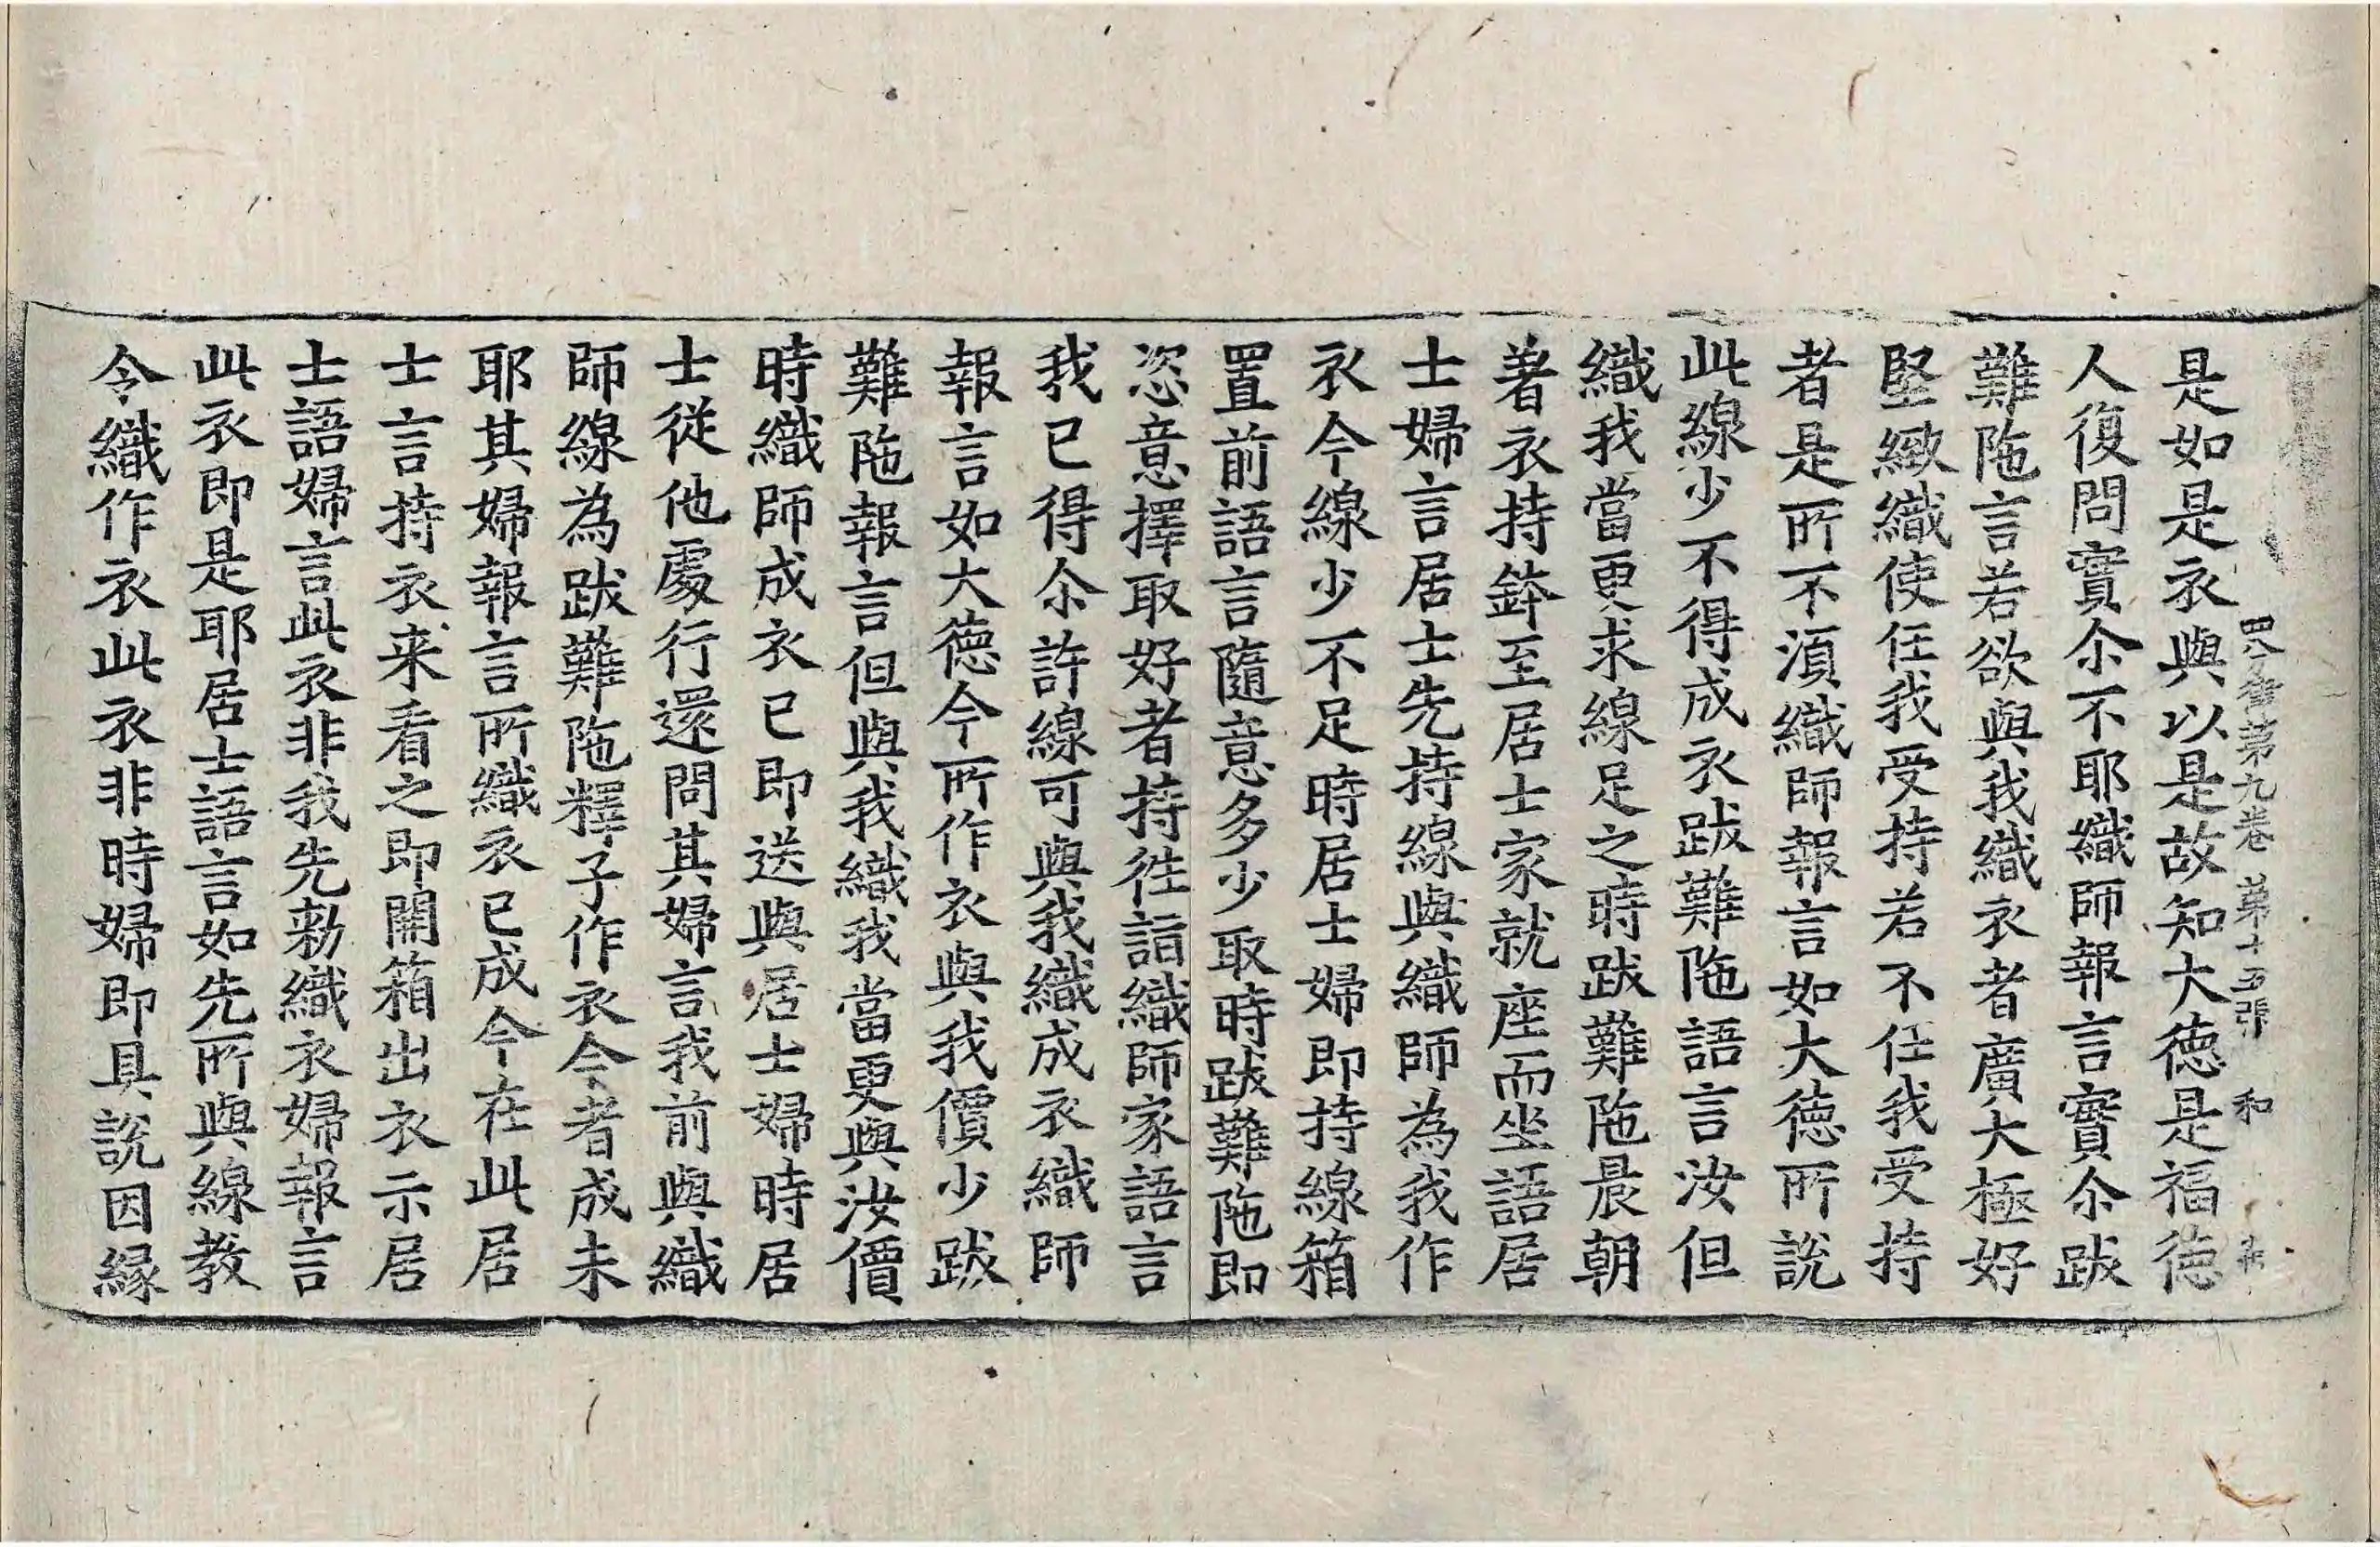 四分律第九卷 第十五張 和
是如是衣與以是故知大德是福德
人復問實尒不耶織師報言實尒跋
難陁言若欲與我織衣者廣大極好
堅緻織使任我受持若不任我受持
者是所不湏織師報言如大德所說
此線少不得成衣跋難陁語言汝但
織我當更求線足之時跋難陁晨朝
著衣持鉢至居士家就座而坐語居
士婦言居士先持線與織師為我作
衣今線少不足時居士婦即持線箱
置前語言隨意多少取時跋難陁即
恣意擇取好者持徃詣織師家語言
我已得尒許線可與我織成衣織師
報言如大德今所作衣與我價少跋
難陁報言但與我織我當更與汝價
時織師成衣已即送與居士婦時居
士從他處行還問其婦言我前與織
師線為跋難陁釋子作衣今者成未
耶其婦報言所織衣已成今在此居
士言持衣来看之即開箱出衣示居
士語婦言此衣非我先勑織衣婦報言
此衣即是耶居士語言如先所與線教
令織作衣此衣非時婦即具說因緣